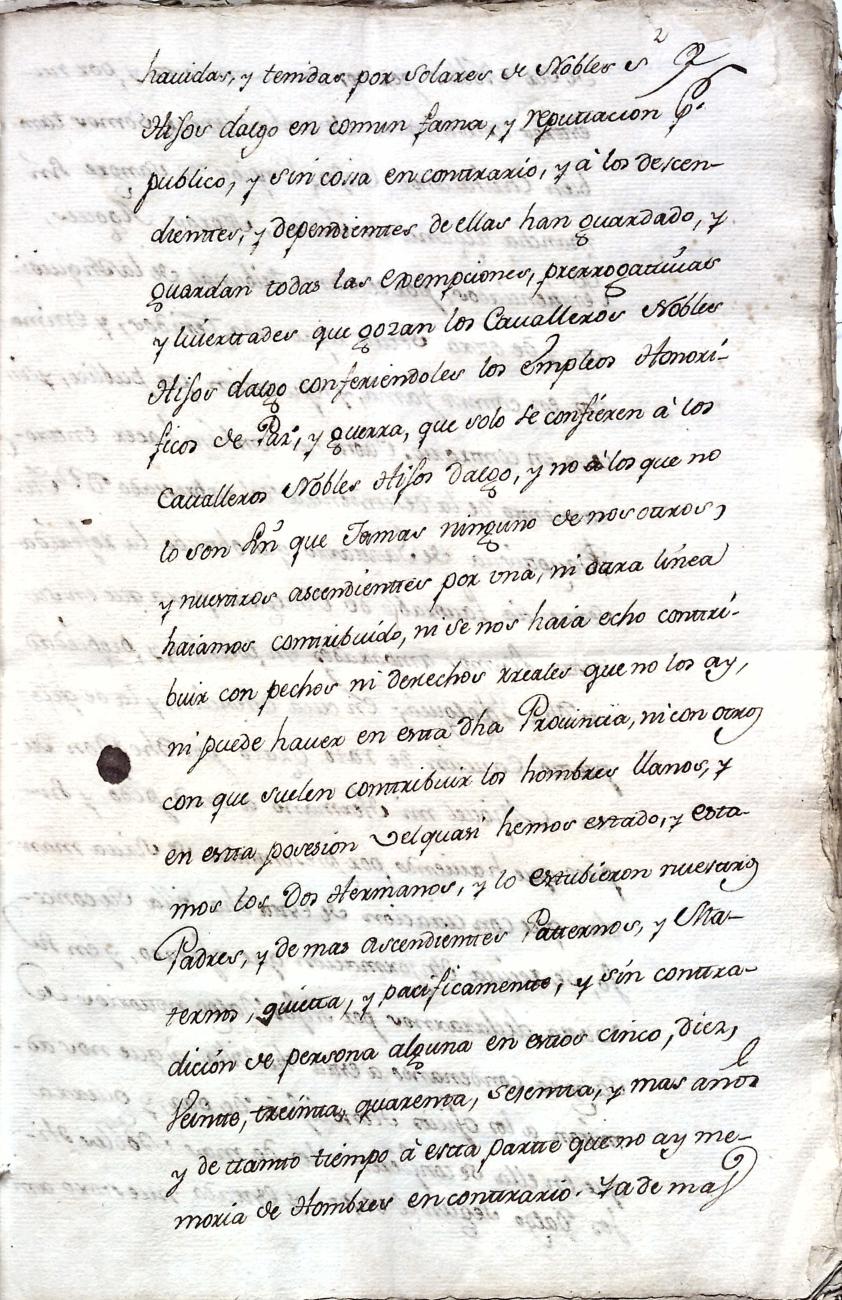 2
havidas, y tenidas por Solares de Nobles
Hijos dalgo en comun fama, y reputtacion
publico, y sin cosa en conttrario, y à los descen-
dienttes, y dependienttes de ellas han guardado, y
guardan todas las exempciones, prerrogativas
y livierttades que gozan los Cavalleros Nobles
Hijos dalgo confiriendoles los empleos Honori-
ficos de Paz, y guerra, que solo se confieren à los
Cavalleros Nobles Hijos dalgo, y no à los que no
lo son sin que Jamas ninguno de nosotros,
y nuesttros ascendienttes por una, ni otra linea
haiamos conttribuido, ni se nos haia echo conttri-
buir con pechos ni derechos rreales que no los ay,
ni puede haver en estta dha Provincia, ni con otros
con que suelen conttribuir los hombres llanos, y
en estta posesion vel quasi hemos estado, y esta-
mos los Dos Hermanos, y lo estubieron nuestros
Padres, y demas ascendienttes Patternos, y Ma-
ternos, quietta, y pacificamentte, y sin conttra-
dición de persona alguna en esttos cinco, diez,
Veintte, treintta, quarenta, sesentta, y mas años
y de ttantto tiempo à estta partte que no ay me-
moria de Hombres en conttrario. Ya demas